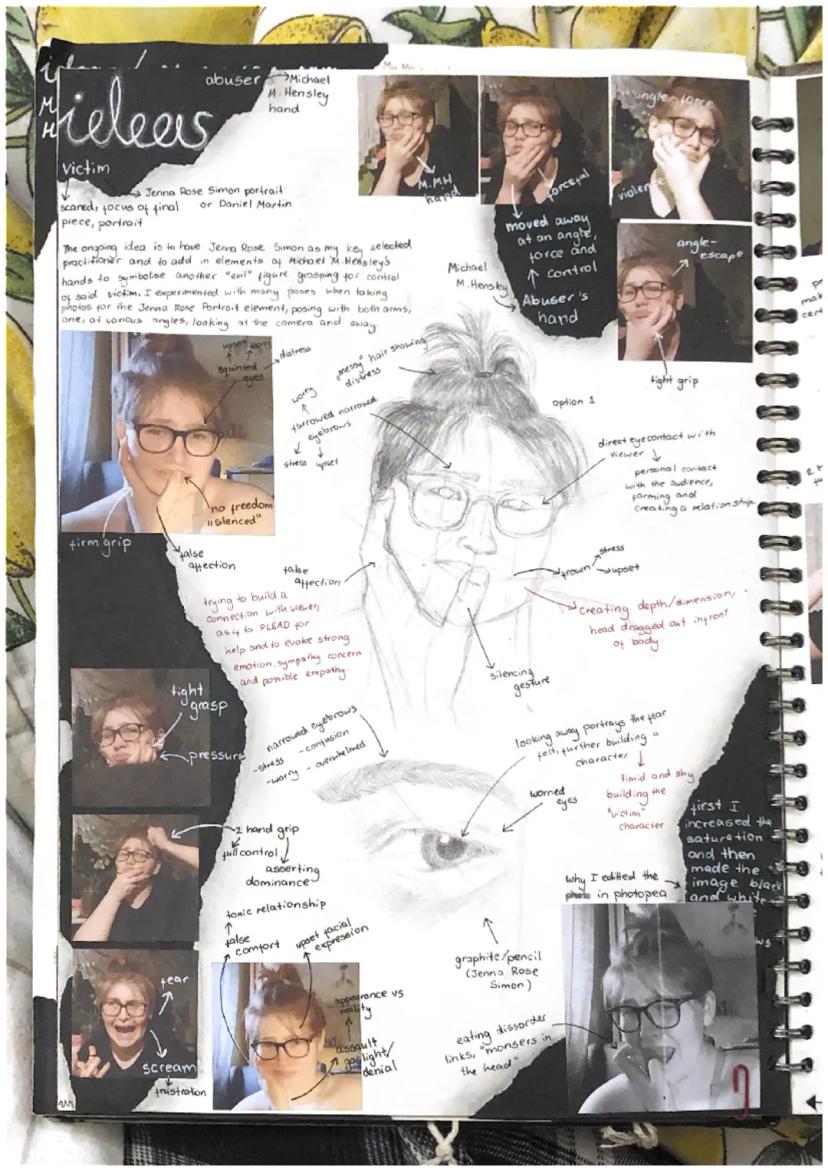 ideas
abuser → Michael
M. Hensley
hand
victim
Jenna Rose Simon portrait
or Daniel Martin
scared, focus of final
piece, portrait
The ongoing idea is to have Jenna Rose Simon as my key selected
practitioner and to add in elements of Michael M.Hensley's
hands to symbolise another "evil" figure grasping for control
of said victim. I experimented with many poses when taking
photos for the Jenna Rose Portrait element, posing with both arms,
one, at various angles, looking at the camera and away.
M.MH
hand
forceful
angle-force
violence
moved away
at an angle,
force and
control
Abuser's
hand
Michael
M.Hensley
angle-
escape
tight grip
upset
squinted
eyes
distress
no freedom
"silenced"
firm grip
false
affection
"messy" hair showing
distress
worry
furrowed narrowed
eyebrows
stress
upset
option 1
direct eyecontact with
viewer
personal contact
with the audience,
forming and
creating a relationship
false
affection
frown
stress
upset
creating depth/dimension,
head dragged out infront
of body.
silencing
gesture
trying to build a
connection with viewer,
as if to PLEAD for
help and to evoke strong
emotion, sympathy concern
and possible empathy.
tight
grasp
pressure
narrowed eyebrows
-stress -confusion
-worry -overwhelmed
looking away portrays the fear
felt, further building a
character
timid and shy
building the
"victim"
character
worried
eyes
first I
increased the
saturation
and then
made the
image black
and white
2 hand grip
full control
asserting
dominance
why I editted the
photo in photopea
toxic relationship
false
comfort
upset facial
expression
graphite/pencil
(Jenna Rose
Simon)
fear
scream
frustration
appearance vs
reality
assault
gaslight/
denial
eating dissorder
links, "monsers in
the head"